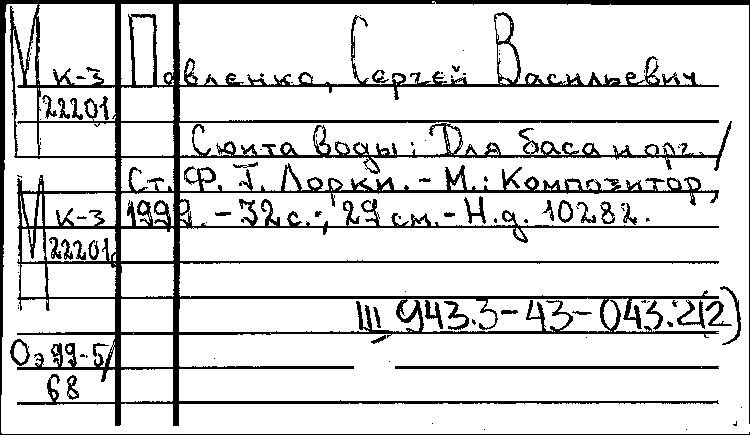 М к-3 Павленко, Сергей Васильевич
22201
Сюита воды: Для баса и орг. /
Ст. Ф. Г. Лорки. - М.: Композитор,
М к-3 1999. - 32 с.; 29 см. - Н.д. 10282.
22201
III 943.3-43-043.2(2)
Оэ 99-5/
68